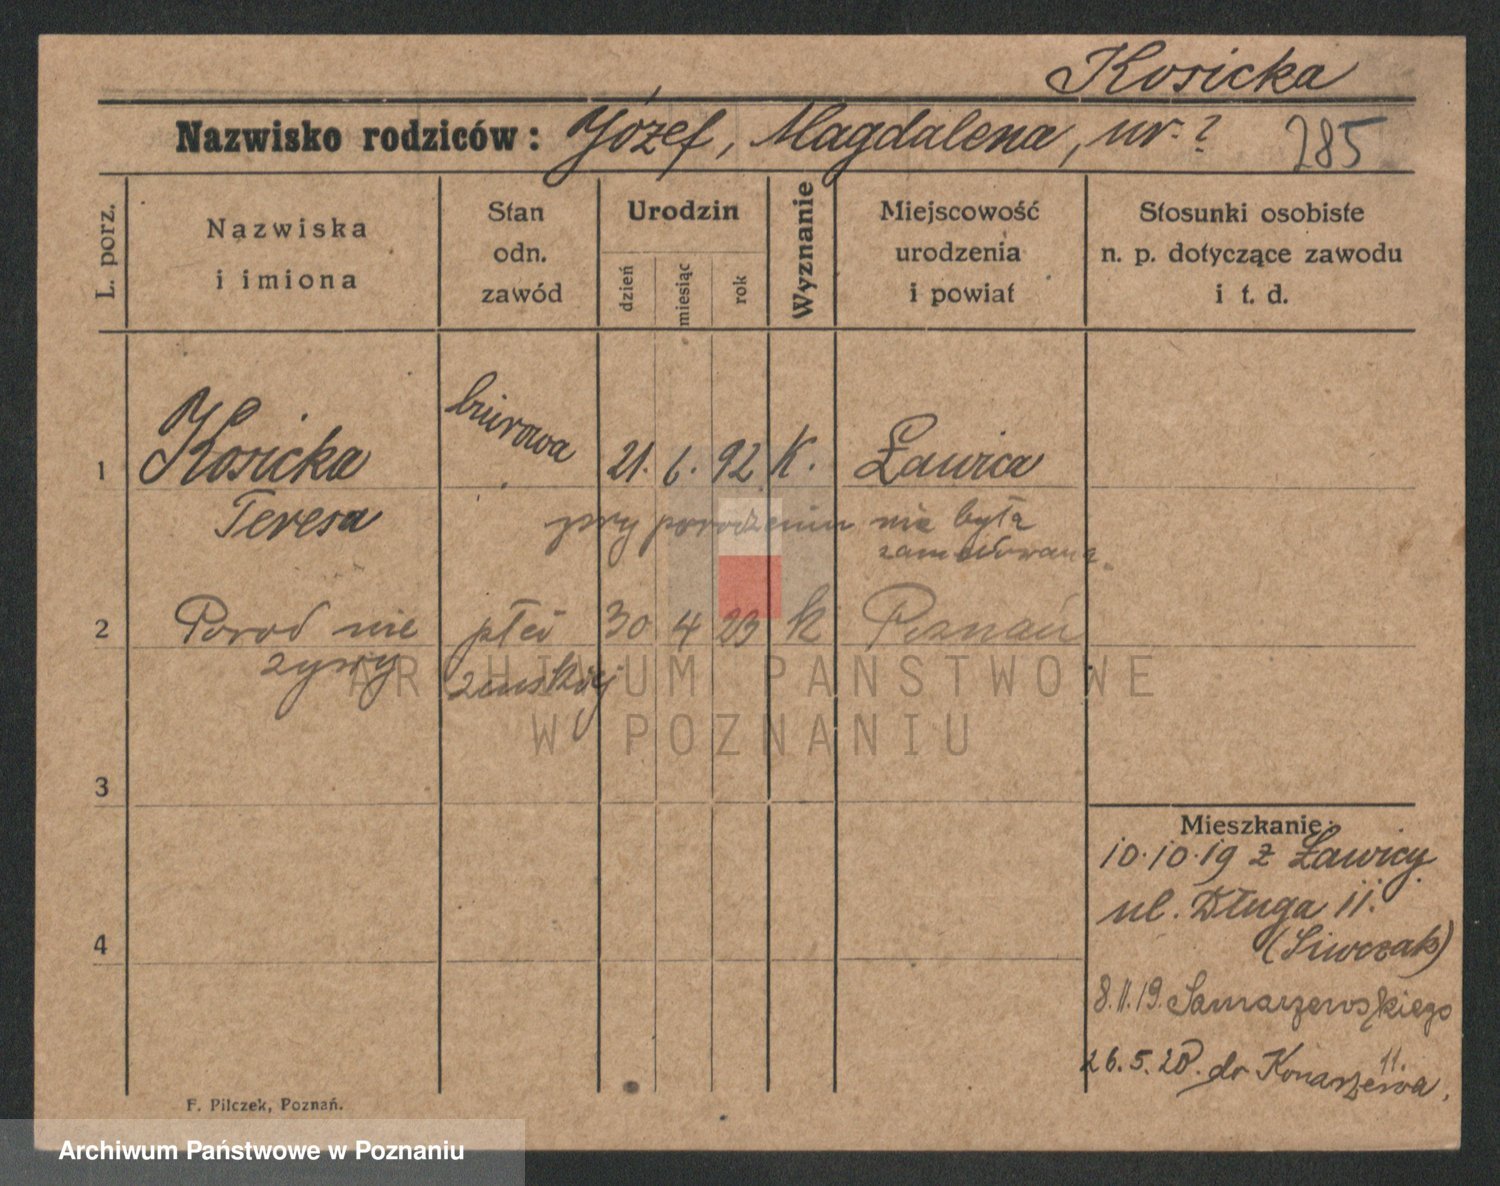 Kosicka
Nazwisko rodziców: Józef, Magdalena, ur. ? 285
L. porz.
Nazwiska
i imiona
Stan
odn.
zawód
Urodzin
dzień
miesiąc
rok
Wyznanie
Miejscowość
urodzenia
i powiat
Stosunki osobiste
n. p. dotyczące zawodu
i t. d.
1 Kosicka biurowa 21. 6. 92 K. Ławica
Teresa
przy porodzeniu nie była
zameldowana.
2 Porod nie płci 30 4 23 k Poznań
zywy zenskiej
3
4
Mieszkanie:
10.10.19 z Ławicy
ul. Długa 11.
(Siwczak)
8.11.19. Samarzewskiego
11.
26.5.20. do Konarzewa.
F. Pilczek, Poznań.
ARCHIWUM PAŃSTWOWE
W POZNANIU
Archiwum Państwowe w Poznaniu